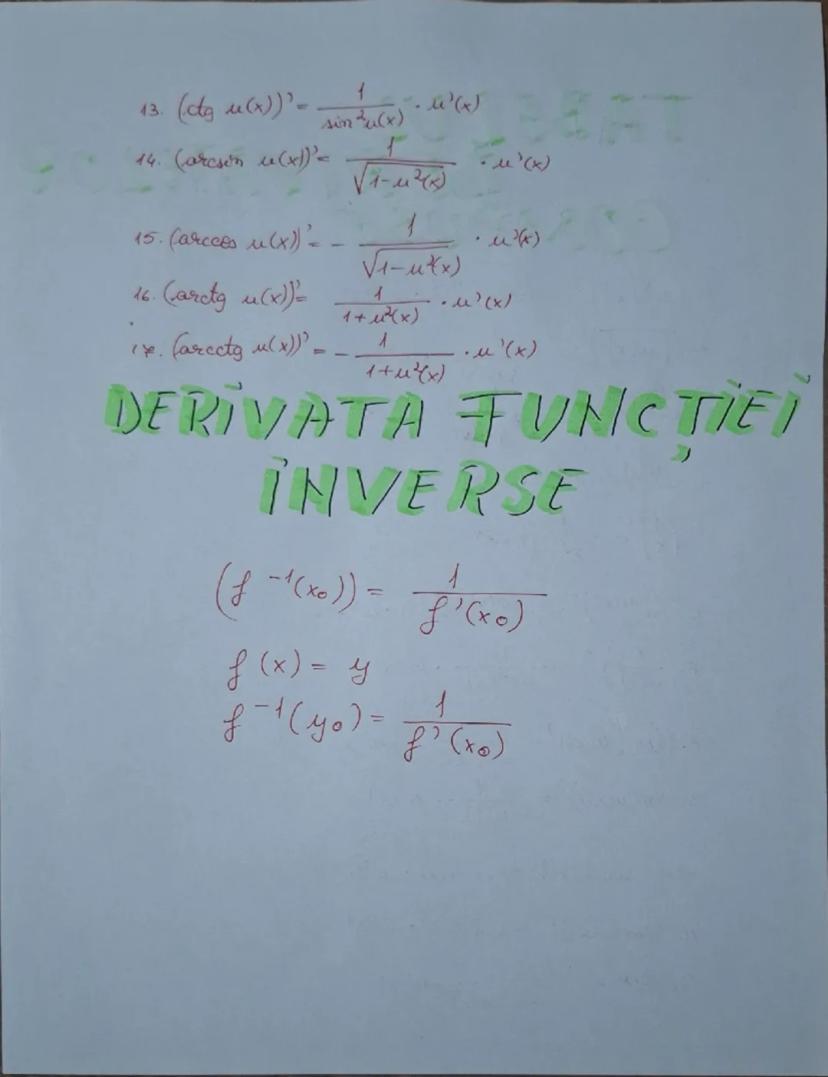 13. (ctg u(x))' = 1/sin²u(x) · u'(x)
14. (arcsin u(x))' = 1/√(1-u²(x)) · u'(x)
15. (arccos u(x))' = - 1/√(1-u²(x)) · u'(x)
16. (arctg u(x))' = 1/(1+u²(x)) · u'(x)
17. (arcctg u(x))' = - 1/(1+u²(x)) · u'(x)
DERIVATA FUNCȚIEI
INVERSE
(f⁻¹(x₀)) = 1/f'(x₀)
f(x) = y
f⁻¹(y₀) = 1/f'(x₀)